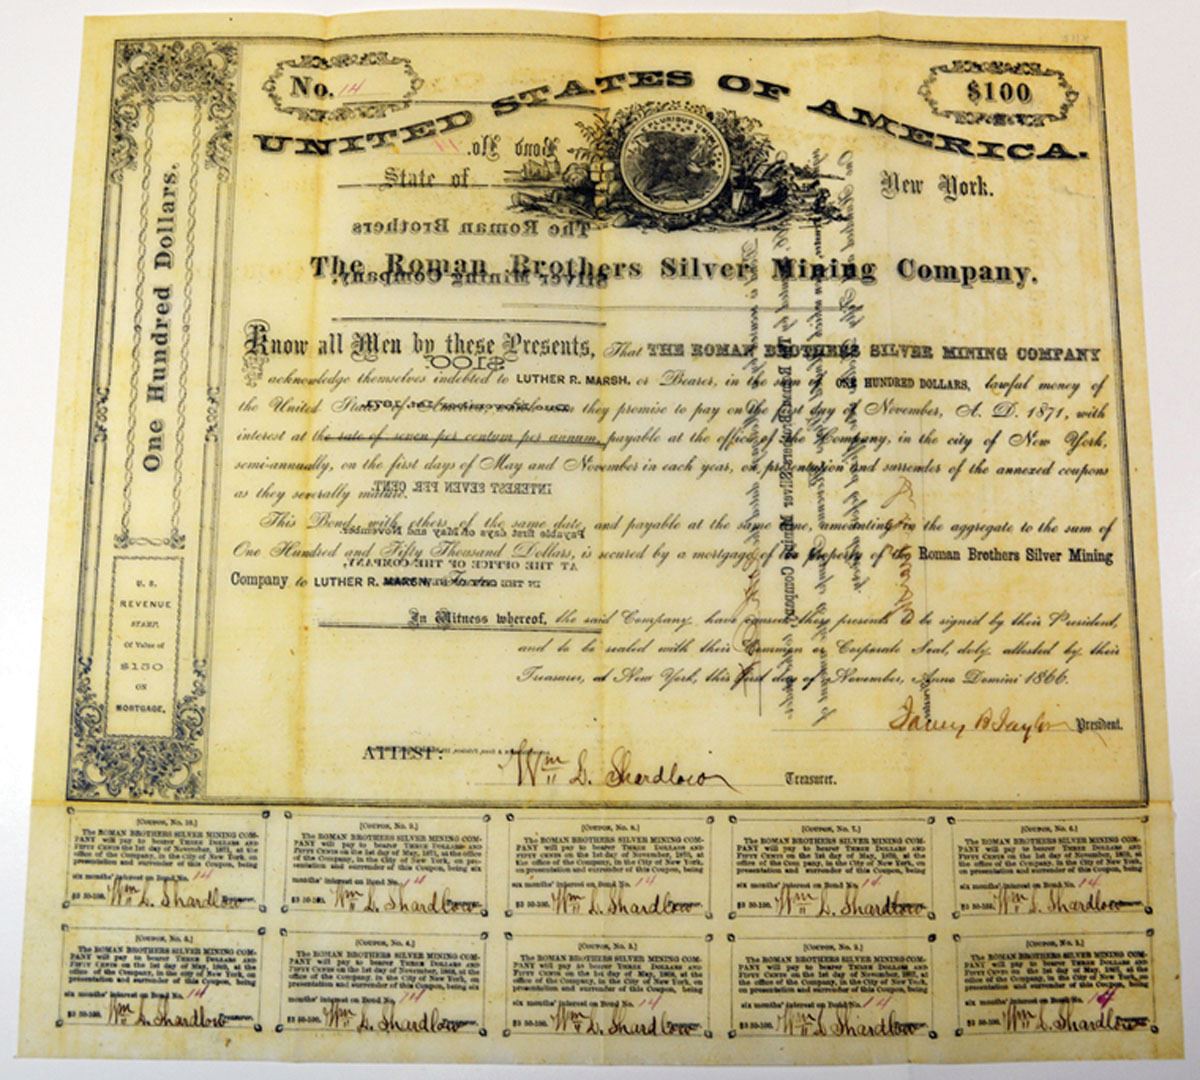 No. 14
UNITED STATES OF AMERICA.
$100
E PLURIBUS UNUM
State of New York.
The Roman Brothers Silver Mining Company.
Know all Men by these Presents, That THE ROMAN BROTHERS SILVER MINING COMPANY
acknowledge themselves indebted to LUTHER R. MARSH, or Bearer, in the sum of ONE HUNDRED DOLLARS, lawful money of
the United States of they promise to pay on the first day of November, A. D. 1871, with
interest at the rate of seven per centum per annum, payable at the office of the Company, in the city of New York,
semi-annually, on the first days of May and November in each year, on presentation and surrender of the annexed coupons
as they severally mature.
This Bond, with others of the same date, and payable at the same time, amounting in the aggregate to the sum of
One Hundred and Fifty Thousand Dollars, is secured by a mortgage of the property of the Roman Brothers Silver Mining
Company to LUTHER R. MARSH,
In Witness whereof, the said Company have caused these presents to be signed by their President,
and to be sealed with their Common or Corporate Seal, duly attested by their
Treasurer, at New York, this first day of November, Anno Domini 1866.
President.
ATTEST:
Wm L. Shardlow Treasurer.
One Hundred Dollars.
U. S.
REVENUE
STAMP,
Of Value of
$150
ON
MORTGAGE.
Bond No. 14
The Roman Brothers
Silver Mining Company.
$100.
INTEREST SEVEN PER CENT.
Payable first days of May and November
AT THE OFFICE OF THE COMPANY,
IN THE CITY OF
[Coupon, No. 10.]
The ROMAN BROTHERS SILVER MINING COM-
PANY will pay to bearer THREE DOLLARS AND
FIFTY CENTS on the 1st day of November, 1871, at the
office of the Company, in the City of New York, on
presentation and surrender of this Coupon, being
six months' interest on Bond No. 14
$3 50-100. Wm L. Shardlow Treasurer.
[Coupon, No. 9.]
The ROMAN BROTHERS SILVER MINING COM-
PANY will pay to bearer THREE DOLLARS AND
FIFTY CENTS on the 1st day of May, 1871, at the office
of the Company, in the City of New York, on pre-
sentation and surrender of this Coupon, being
six months' interest on Bond No. 14
$3 50-100. Wm L. Shardlow Treasurer.
[Coupon, No. 8.]
The ROMAN BROTHERS SILVER MINING COM-
PANY will pay to bearer THREE DOLLARS AND
FIFTY CENTS on the 1st day of November, 1870, at the
office of the Company, in the City of New York, on
presentation and surrender of this Coupon, being
six months' interest on Bond No. 14
$3 50-100. Wm L. Shardlow Treasurer.
[Coupon, No. 7.]
The ROMAN BROTHERS SILVER MINING COM-
PANY will pay to bearer THREE DOLLARS AND
FIFTY CENTS on the 1st day of May, 1870, at the
office of the Company, in the City of New York, on
presentation and surrender of this Coupon, being
six months' interest on Bond No. 14
$3 50-100. Wm L. Shardlow Treasurer.
[Coupon, No. 6.]
The ROMAN BROTHERS SILVER MINING COM-
PANY will pay to bearer THREE DOLLARS AND
FIFTY CENTS on the 1st day of November, 1869, at the
office of the Company, in the City of New York, on
presentation and surrender of this Coupon, being
six months' interest on Bond No. 14
$3 50-100. Wm L. Shardlow Treasurer.
[Coupon, No. 5.]
The ROMAN BROTHERS SILVER MINING COM-
PANY will pay to bearer THREE DOLLARS AND
FIFTY CENTS on the 1st day of May, 1869, at the
office of the Company, in the City of New York, on
presentation and surrender of this Coupon, being
six months' interest on Bond No. 14
$3 50-100. Wm L. Shardlow Treasurer.
[Coupon, No. 4.]
The ROMAN BROTHERS SILVER MINING COM-
PANY will pay to bearer THREE DOLLARS AND
FIFTY CENTS on the 1st day of November, 1868, at the
office of the Company, in the City of New York, on
presentation and surrender of this Coupon, being
six months' interest on Bond No. 14
$3 50-100. Wm L. Shardlow Treasurer.
[Coupon, No. 3.]
The ROMAN BROTHERS SILVER MINING COM-
PANY will pay to bearer THREE DOLLARS AND
FIFTY CENTS on the 1st day of May, 1868, at the
office of the Company, in the City of New York, on
presentation and surrender of this Coupon, being
six months' interest on Bond No. 14
$3 50-100. Wm L. Shardlow Treasurer.
[Coupon, No. 2.]
The ROMAN BROTHERS SILVER MINING COM-
PANY will pay to bearer THREE DOLLARS AND
FIFTY CENTS on the 1st day of November, 1867, at
the office of the Company, in the City of New York, on
presentation and surrender of this Coupon, being
six months' interest on Bond No. 14
$3 50-100. Wm L. Shardlow Treasurer.
[Coupon, No. 1.]
The ROMAN BROTHERS SILVER MINING COM-
PANY will pay to bearer THREE DOLLARS AND
FIFTY CENTS on the 1st day of May, 1867, at the
office of the Company, in the City of New York, on
presentation and surrender of this Coupon, being
six months' interest on Bond No. 14
$3 50-100. Wm L. Shardlow Treasurer.